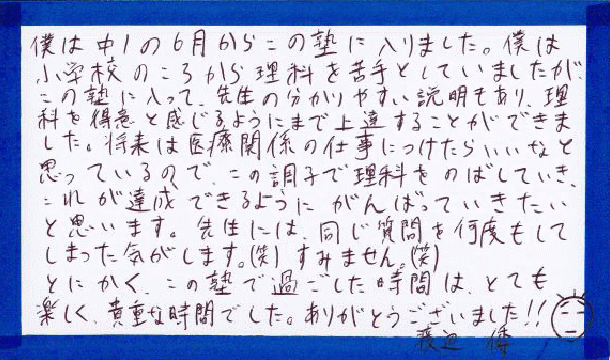 僕は中1の6月からこの塾に入りました。僕は
小学校のころから理科を苦手としていましたが、
この塾に入って、先生の分かりやすい説明もあり、理
科を得意と感じるようにまで上達することができま
した。将来は医療関係の仕事につけたらいいなと
思っているので、この調子で理科をのばしていき、
これが達成できるようにがんばっていきたい
と思います。先生には、同じ質問を何度もして
しまった気がします。(笑)すみません。(笑)
とにかく、この塾で過ごした時間は、とても
楽しく、貴重な時間でした。ありがとうございました!!
渡辺